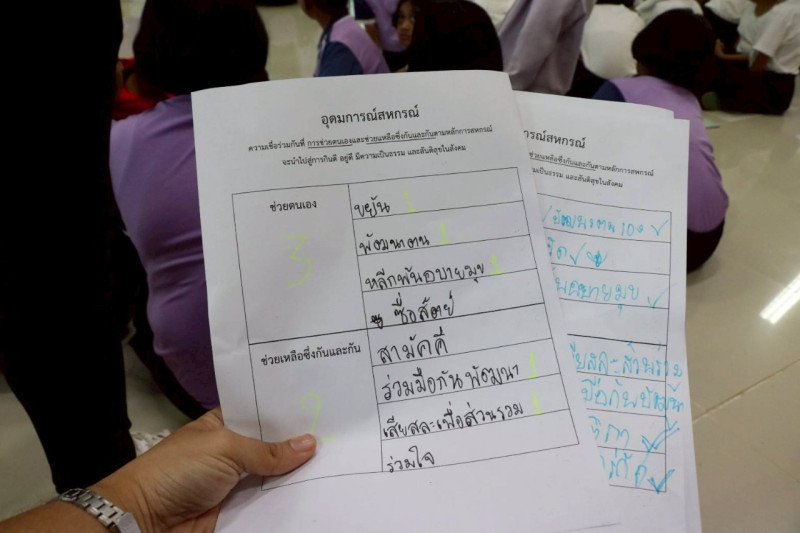 อุดมการณ์สหกรณ์
ความเชื่อร่วมกันที่ การช่วยตนเองและช่วยเหลือซึ่งกันและกันตามหลักการสหกรณ์
จะนำไปสู่การกินดี อยู่ดี มีความเป็นธรรม และสันติสุขในสังคม
ช่วยตนเอง
3
ขยัน 1
พัฒนาตน 1
หลีกพ้นอบายมุข 1
ซื่อสัตย์
ช่วยเหลือซึ่งกันและกัน
2
สามัคคี
ร่วมมือกันพัฒนา 1
เสียสละเพื่อส่วนรวม 1
ร่วมใจ
ารณ์สหกรณ์
ช่วยเหลือซึ่งกันและกันตามหลักการสหกรณ์
ความเป็นธรรม และสันติสุขในสังคม
พัฒนาตนเอง ✓
✓
อบายมุข ✓
ส่วนรวม
มือกันพัฒนา
✓
✓